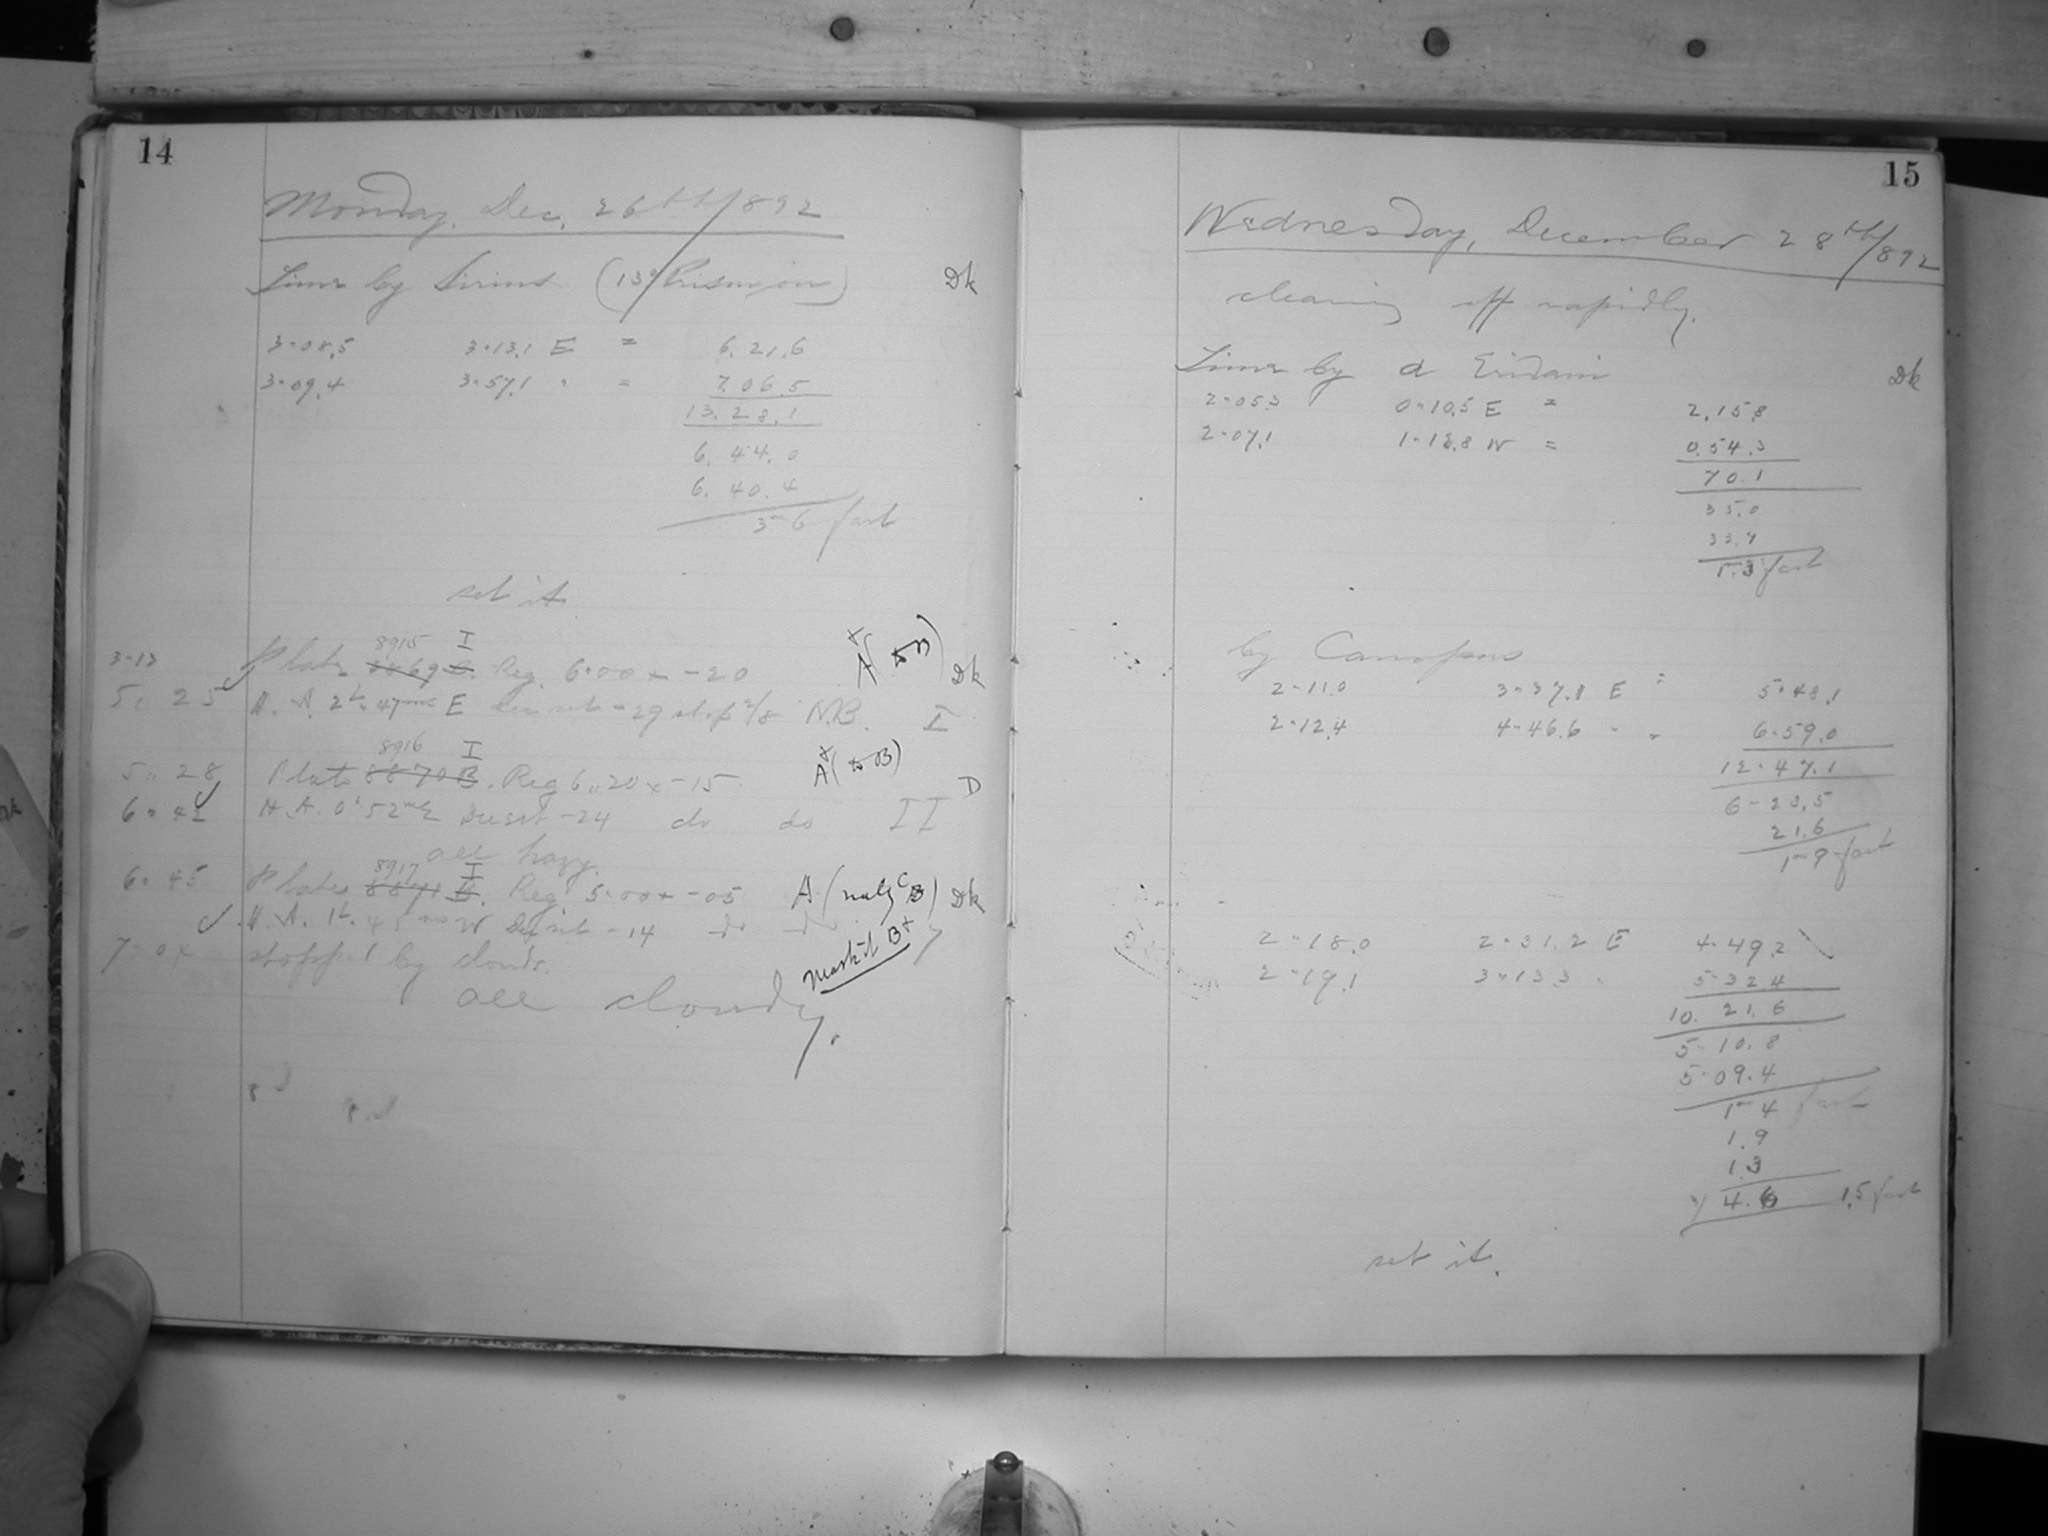 14
Monday, Dec. 26th/1892
Time by Sirius (13° Prism on) Dk
3-08.5 3-13.1 E = 6.21.6
3-09.4 3-57.1 " = 7.06.5
13.28.1
6.44.0
6.40.4
3m6 fast
set it
8915 I
3-13 Plate 8869 B. Reg. 6-00 x -20 A+ (to B) Dk
5,, 25 H. A. 2h. 47m E Dec set - 29 stop 2/8 N.B. I
8916 I
5,, 28 Plate 8870 B. Reg 6,, 20 x -15 A+ (to B)
6 " 42 H. A. 0h 52m E Dec set -24 do do II D
all hazy.
8917 I
6. 45 Plate 8871 B. Reg 5-00 x -05 A (nalyC B) Dk
H. A. 1h. 45m W Dec set - 14 do do
Mark it B+
stopped by clouds.
all cloudy.
15
Wednesday, December 28th/1892
clearing off rapidly.
Time by α Eridani Dk
2-05.3 0-10.5 E = 2.15.8
2-07.1 1-12.8 W = 0.54.3
70.1
35.0
33.7
1m.3 fast
by Canopus
2-11.0 3-37.1 E = 5-48.1
2-12.4 4-46.6 " " 6-59.0
12-47.1
6-23.5
21.6
1m9 fast
2-18.0 2-31.2 E 4-49.2
2-19.1 3-13.3 " 5-32.4
10. 21.6
5-10.8
5-09.4
1m4 fast
1.9
1.3
4.6 1.5 fast
set it.